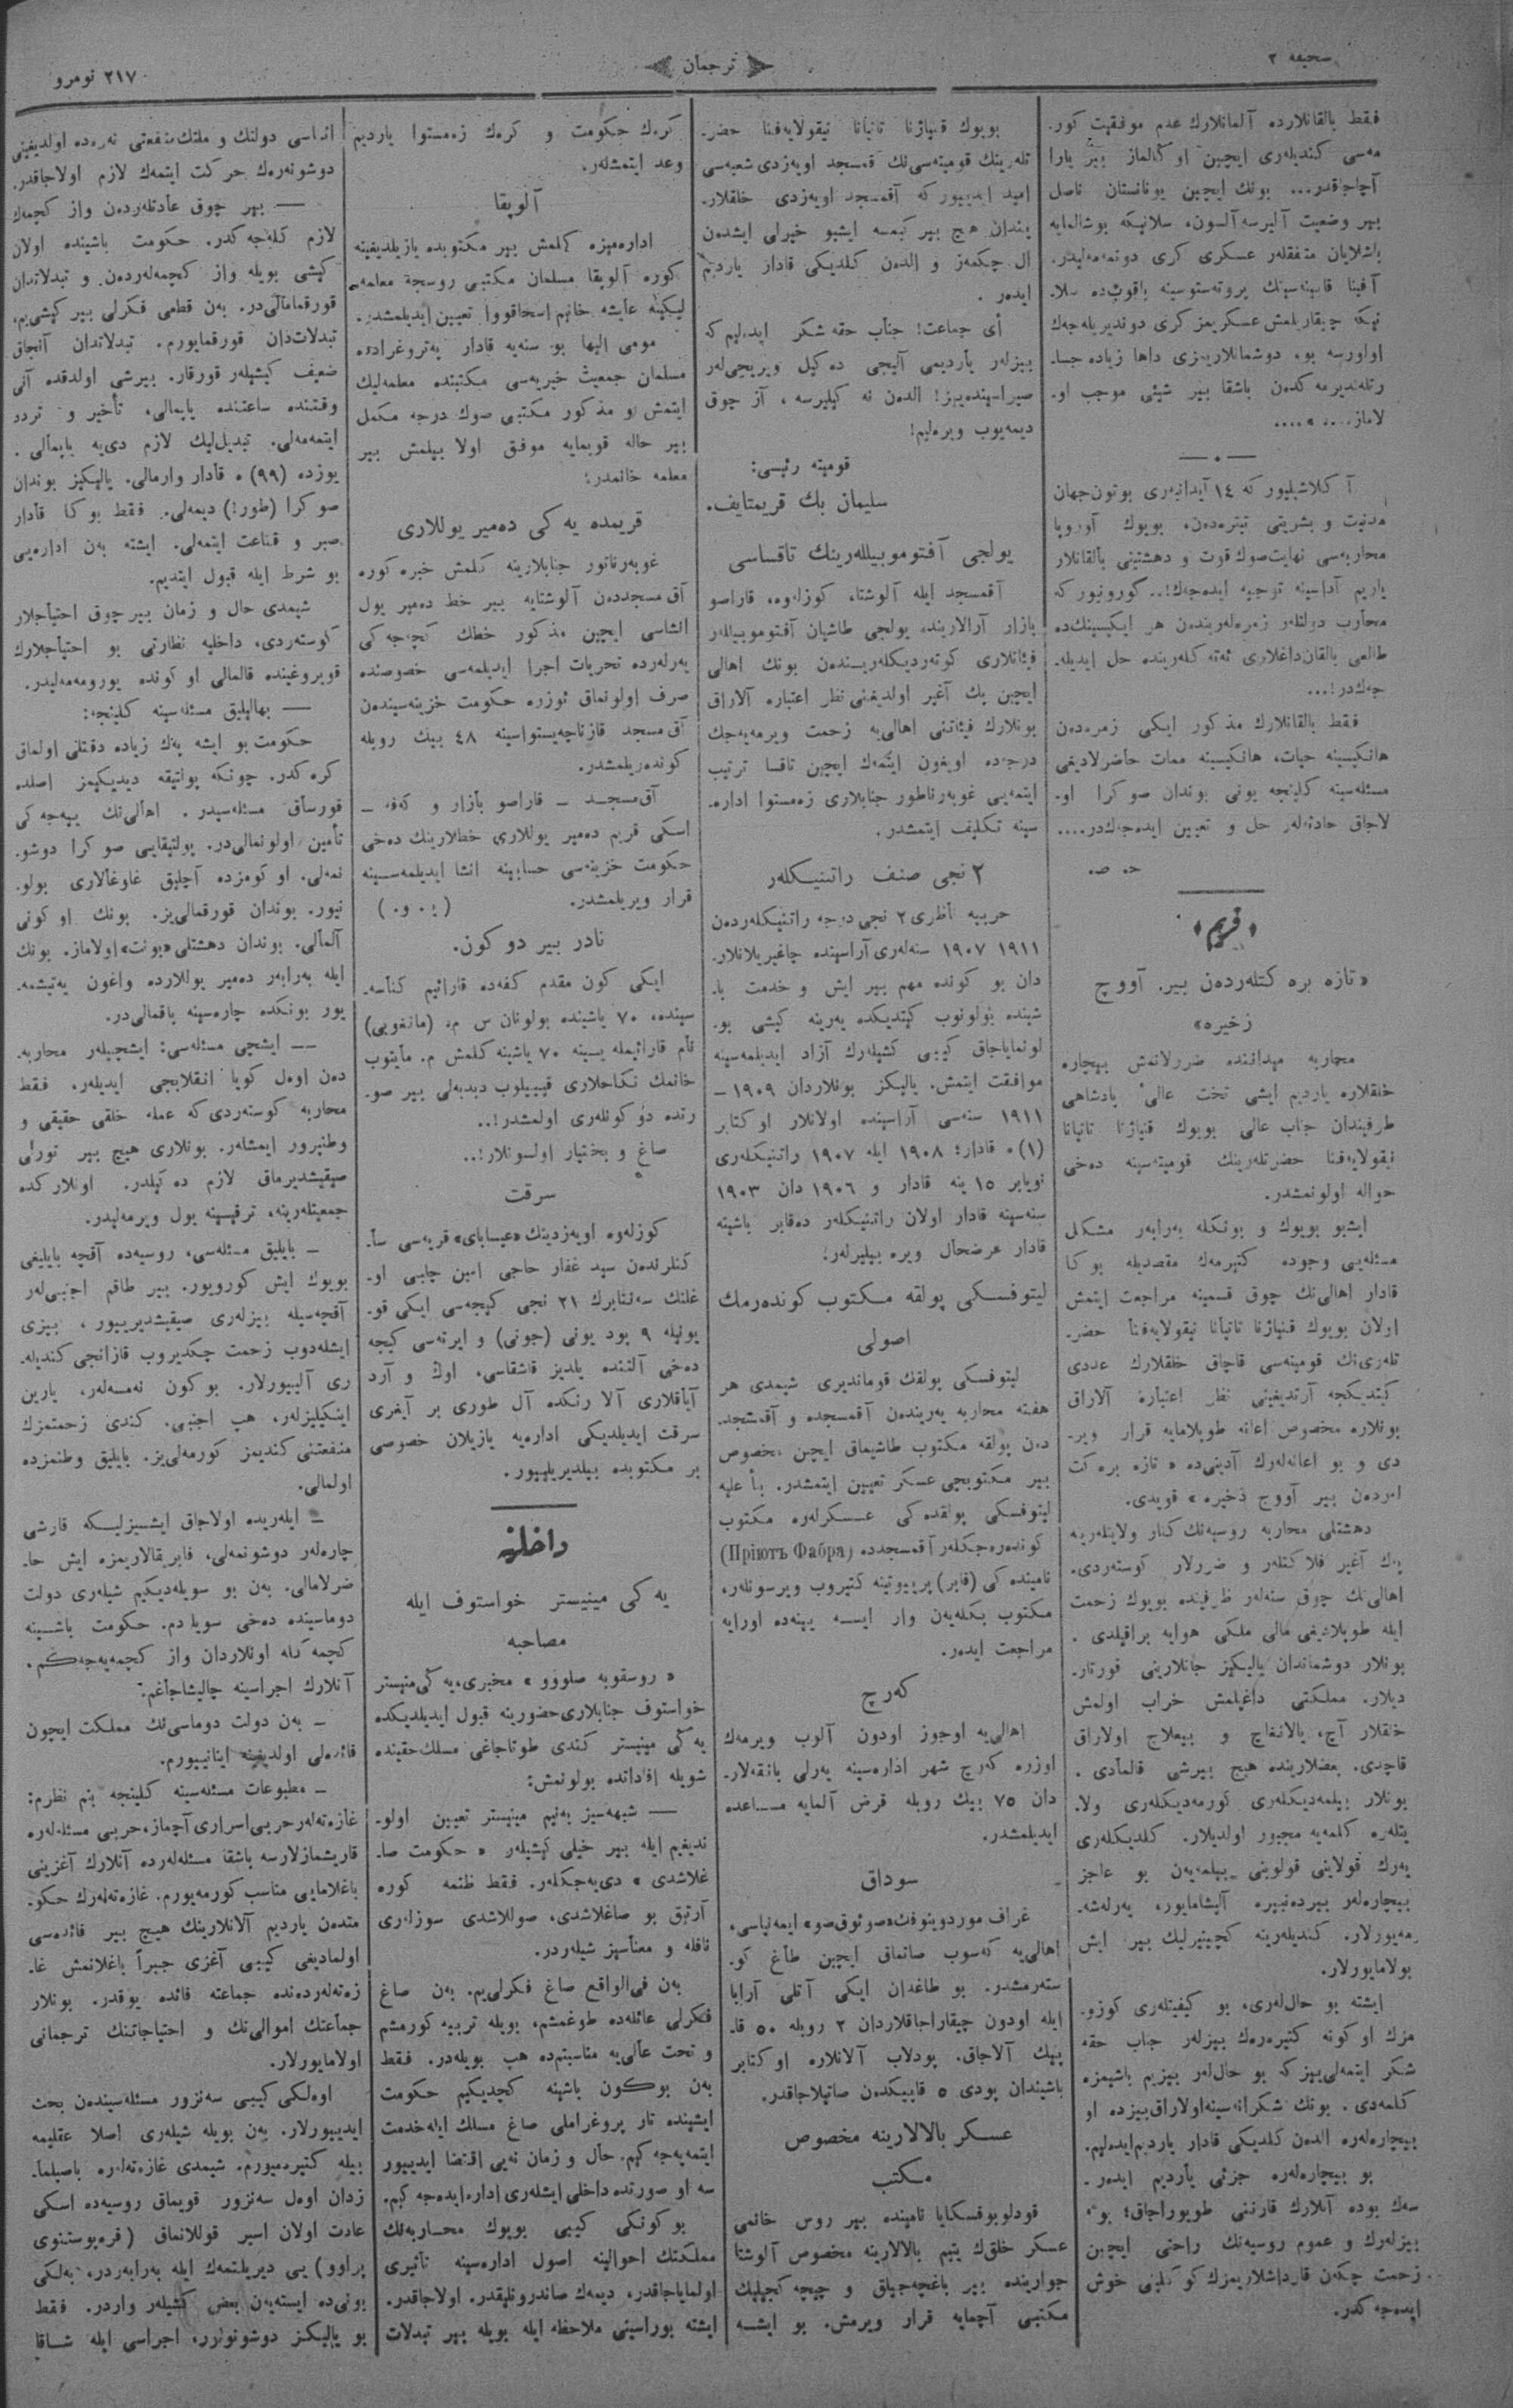 صحیفه ۲
ترجمان
۲۱۷ نومرو
فقط بالقانلارده آلمانلارك عدم موفقیت كور-
مه‌سی كندیله‌ری ایچین اوڭالماز بیر یارا
آچاجاقدر... بونك ایچین یونانستان ناصل
بیر وضعیت آلیرسه آلسون، سلانیكه بوشالمایه
باشلایان متفقلەر عسكری كری دونمه‌مه‌لیدر.
آفینا قابینه‌سینك پروته‌ستوسینه باقوب‌ده سلا-
نیكه چیقاریلمش عسكریمز كری دوندیریله‌جك
اولورسه بو، دوشمانلاریمزی داها زیاده جسا-
رتله‌ندیرمه‌كدن باشقا بیر شیئی موجب او-
لاماز.....
آڭلاشیلیور كه ۱٤ آیدانبری بوتون جهان
مدنیت و بشریتی تیتره‌دن، بویوك آوروپا
محاربه‌سی نهایت صوك قوت و دهشتینی بالقانلار
یاریم آداسینه توجیه ایده‌جك!.. گورونیور كه
محارب دولتلەر زمره‌له‌ریندن هر ایكیسینك‌ده
طالعی بالقان‌داغلاری ئه‌ته‌كله‌رینده حل ایدیله-
جه‌كدر!...
فقط بالقانلارك مذكور ایكی زمره‌دن
هانكیسینه حیات، هانكیسینه ممات حاضرلادیغی
مسئله‌سینه كلینجه بونی بوندان صوڭرا او-
لاجاق حادثه‌لەر حل و تعیین ایده‌جه‌كدر....
ح. ص.
«قریم»
«تازه بره‌كتلەردن بیر. آووچ
زخیره»
محاربه میداننده ضررلانمش بیچاره
خلقلاره یاردیم ایشی تخت عالیٔ پادشاهی
طرفیندان جناب عالی بویوك قنیاژنا تاتیانا
نیقولایه‌فنا حضرتله‌رینك قومیته‌سینه ده‌خی
حواله اولونمشدر.
ایشبو بویوك و بونكله به‌رابه‌ر مشكل
مسئله‌یی وجوده كتیرمه‌ك مقصدیله بوڭا
قادار اهالی‌نك چوق قسمینه مراجعت ایتمش
اولان بویوك قنیاژنا تاتیانا نیقولایه‌فنا حضر-
تله‌ری‌نك قومیته‌سی قاچاق خلقلارك عددی
كیتدیكجه آرتدیغینی نظر اعتباره آلاراق
بونلاره مخصوص اعانه طوپلامایه قرار ویر-
دی و بو اعانه‌له‌رك آدینی‌ده «تازه بره‌كت
لەردن بیر آووچ ذخیره» قویدی.
دهشتلی محاربه روسیه‌نك كنار ولایتله‌رینه
پك آغیر فلاكتلەر و ضررلار كوسته‌ردی.
اهالی‌نك چوق سنه‌لەر ظرفینده بویوك زحمت
ایله طوپلادیغی مالی ملكی هوایه براقیلدی.
بونلار دوشماندان یالیكز جانلارینی قورتار-
دیلار. مملكتی داغیلمش خراب اولمش
خلقلار آچ، یالانغاچ و بیعلاج اولاراق
قاچدی. بعضلارینده هیچ بیرشی قالمادی.
بونلار بیلمه‌دیكله‌ری كورمه‌دیكله‌ری ولا-
یتلەره كلمه‌یه مجبور اولدیلار. كلدیكله‌ری
یه‌رك قولاینی قولوبنی بیلمه‌یه‌ن بو عاجز
بیچاره‌لەر بیردنبیره آلیشامایور، یه‌رله‌شه-
مه‌یورلار. كندیله‌رینه كچینیرلیك بیر ایش
بولامایورلار.
ایشته بو حال‌له‌ری، بو كیفیتله‌ری كوزو-
مزك اوكونه كتیره‌رك بیزلەر جناب حقه
شكر ایتمه‌لی‌ییز كه بو حال‌لەر بیزیم باشیمزه
كلمه‌دی. بونك شكرانه‌سینه اولاراق بیزده او
بیچاره‌لەره الدن كلدیكی قادار یاردیم ایده‌لیم.
بو بیچاره‌لەره جزئی یاردیم ایدەر-
سه‌ك بوده آنلارك قارننی طویوراجاق؛ بو
بیزله‌رك و عموم روسیه‌نك راحتی ایچین
زحمت چكه‌ن قارداشلاریمزك كوڭلینی خوش
ایده‌جه‌كدر.
بویوك قنیاژنا تاتیانا نیقولایه‌فنا حضر-
تله‌رینك قومیته‌سی‌نك قمسجد اویه‌زدی شعبه‌سی
امید ایدییور كه آقمسجد اویه‌زدی خلقلار-
یندان هیچ بیر كیمسه ایشبو خیرلی ایشدن
ال چكمه‌ز و الدن كلدیكی قادار یاردیم
ایدەر.
أی جماعت! جناب حقه شكر ایده‌لیم كه
بیزلەر یاردیمی آلیجی ده‌كیل ویریجی‌لەر
صیراسینده‌ییز! الدن نه كیلیرسه، آز چوق
دیمه‌یوب ویره‌لیم!
قومیته رئیسی:
سلیمان بك قریمتایف.
یولجی آفتوموبیللەرینك تاقساسی
آقمسجد ایله آلوشتا، كوزله‌وه، قاراصو
بازار آرالارینده یولجی طاشیان آفتوموبیللەر
فیئاتلاری كوته‌ردیكله‌ریندن بونك اهالی
ایچین پك آغیر اولدیغینی نظر اعتباره آلاراق
بونلارك فیئاتنی اهالی‌یه زحمت ویرمه‌یه‌جك
درجه‌ده اویغون ایتمه‌ك ایچین تاقسا ترتیب
ایتمه‌یی غوبه‌رناطور جنابلاری زه‌مستوا اداره-
سینه تكلیف ایتمشدر.
۲ نجی صنف راتنیكلەر
حربیه ناظری ۲ نجی درجه راتنیكلەردن
۱۹۱۱ ۱۹۰۷ سنه‌له‌ری آراسینده چاغیریلانلار-
دان بو كونده مهم بیر ایش و خدمت با-
شینده بولونوب كیتدیكده یه‌رینه كیشی بو-
لونمایاجاق كیبی كشیله‌رك آزاد ایدیلمه‌سینه
موافقت ایتمش. یالیكز بونلاردان ۱۹۰۹ —
۱۹۱۱ سنه‌سی آراسینده اولانلار اوكتابر
(۱) ه قادار؛ ۱۹۰۸ ایله ۱۹۰۷ راتنیكله‌ری
نویابر ۱٥ ینه قادار و ۱۹۰٦ دان ۱۹۰۳
سنه‌سینه قادار اولان راتنیكلەر ده‌قابر باشینه
قادار عرضحال ویره بیلیرلەر؛
لیتوفسكی پولقه مكتوب كونده‌رمك
اصولی
لیتوفسكی پولقك قوماندیری شیمدی هر
هفته محاربه یه‌ریندن آقمسجده و آقمسجد-
دن پولقه مكتوب طاشیماق ایچین مخصوص
بیر مكتوبچی عسكر تعیین ایتمشدر. بناٴ علیه
لیتوفسكی پولقده‌كی عسكرلەره مكتوب
كونده‌ره‌جكلەر آقمسجدده (Пріютъ Фабра)
نامینده‌كی (فابر) پرییوتینه كتیروب ویرسونلەر،
مكتوب بكله‌یه‌ن وار ایسه یینه‌ده اورایه
مراجعت ایدەر.
كه‌رچ
اهالی‌یه اوجوز اودون آلوب ویرمه‌ك
اوزره كه‌رچ شهر اداره‌سینه یه‌رلی بانقه‌لار-
دان ۷٥ بیك روبله قرض آلمایه مساعده
ایدیلمشدر.
سوداق
غراف موردوینوفك «صوئوق‌صو» ایمه‌نیاسی،
اهالی‌یه كه‌سوب صاتماق ایچین طاغ كو-
سته‌رمشدر. بو طاغدان ایكی آتلی آرابا
ایله اودون چیقاراجاقلاردان ۲ روبله ٥۰ قا-
پیك آلاجاق. پودلاب آلانلاره اوكتابر
باشیندان پودی ٥ قاپیكدن صاتیلاجاقدر.
عسكر بالالارینه مخصوص
مكتب
قودلوبوفسكایا نامینده بیر روس خانمی
عسكر خلق‌ك یتیم بالالارینه مخصوص آلوشتا
جوارینده بیر باغچه‌جیلق و چیچه‌كجیلیك
مكتبی آچمایه قرار ویرمش. بو ایشه
كرك حكومت و كرك زه‌مستوا یاردیم
وعد ایتمشلەر.
آلوپقا
اداره‌میزه كلمش بیر مكتوبده یازیلدیغینه
كوره آلوپقا مسلمان مكتبی روسجه معلمه-
لیكینه عایشه خانم اسحاقووا تعیین ایدیلمشدر.
مومی الیها بو سنه‌یه قادار په‌تروغرادده
مسلمان جمعیت خیریه‌سی مكتبنده معلمه‌لیك
ایتمش و مذكور مكتبی صوك درجه مكمل
بیر حاله قویمایه موفق اولا بیلمش بیر
معلمه خانمدر؛
قریمده یه‌كی ده‌میر یوللاری
غوبه‌رناتور جنابلارینه كلمش خبره كوره
آق‌مسجددن آلوشتایه بیر خط ده‌میر یول
انشاسی ایچین مذكور خطك كچه‌جه‌كی
یه‌رلەرده تحریات اجرا ایدیلمه‌سی خصوصنده
صرف اولونماق ئوزره حكومت خزینه‌سیندن
آق‌مسجد قازناچه‌یستواسینه ٤۸ بیك روبله
كونده‌ریلمشدر.
آق‌مسجد — قاراصو بازار و كه‌فه —
اسكی قریم ده‌میر یوللاری خطلارینك ده‌خی
حكومت خزینه‌سی حسابینه انشا ایدیلمه‌سینه
قرار ویریلمشدر. (ی. و.)
نادر بیر دوكون.
ایكی كون مقدم كفه‌ده قارائیم كنأسه-
سینده، ۷۰ یاشینده بولونان س م. (مانغوبی)
نام قارائیمله یینه ۷۰ یاشینه كلمش م. مأیتوب
خانمك نكاحلاری قییلوب دبدبه‌لی بیر صو-
رتده دوكونله‌ری اولمشدر!..
صاغ و بختیار اولسونلار!..
سرقت
كوزله‌وه اویه‌زدینك «عیسابای» قریه‌سی سا-
كنلرندن سید غفار حاجی امین چلبی او-
غلنك سه‌نتابرك ۲۱ نجی كیجه‌سی ایكی قو-
یونیله ۹ یود یونی (جونی) و ایرته‌سی كیجه
ده‌خی آلتنده یلدیز قاشقاسی، اوڭ و آرد
آیاقلاری آلا رنكده آل طوری بر آیغری
سرقت ایدیلدیكی اداره‌یه یازیلان خصوصی
بر مكتوبده بیلدیریلییور.
داخلیه
یه‌كی مینیستر خواستوف ایله
مصاحبه
«روسقویه صلووو» مخبری، یه‌كی‌مینیستر
خواستوف جنابلاری‌حضورینه قبول ایدیلدیكده
یه‌كی مینیستر كندی طوتاجاغی مسلك‌حقینده
شویله افاداتده بولونمش:
— شبهه‌سیز به‌نیم مینیستر تعیین اولو-
ندیغیم ایله بیر خیلی كیشیلەر «حكومت صا-
غلاشدی» دی‌یه‌جكلەر. فقط ظنمه كوره
آرتیق بو صاغلاشدی، صوللاشدی سوزله‌ری
نافله و معناسیز شیلەردر.
به‌ن فی‌الواقع صاغ فكرلی‌یم. به‌ن صاغ
فكرلی عائله‌ده طوغمشم، بویله تربیه كورمشم
و تحت عالی‌یه مناسبتم‌ده هپ بویله‌در. فقط
به‌ن بوكون باشینه كچدیكیم حكومت
ایشینده تار پروغراملی صاغ مسلك ایله خدمت
ایتمه‌یه‌جه‌كیم. حال و زمان نه‌یی اقتضا ایدییور
سه او صورتده داخلی ایشله‌ری اداره ایده‌جه‌كیم.
بوكونكی كیبی بویوك محاربه‌نك
مملكتك احوالینه اصول اداره‌سینه تأثیری
اولمایاجاقدر، دیمه‌ك صاندرونلیقدر. اولاجاقدر.
ایشته بوراسینی ملاحظه ایله بویله بیر تبدلات
اثناسی دولتك و ملتك‌منفعتی نه‌ره‌ده اولدیغینی
دوشونه‌ره‌ك حركت ایتمه‌ك لازم اولاجاقدر.
— بیر چوق عادتلەردن واز كچمه‌ك
لازم كله‌جه‌كدر. حكومت باشینده اولان
كیشی بویله واز كچمه‌لەردن و تبدلاتدان
قورقمامالی‌در. به‌ن قطعی فكرلی بیر كیشی‌یم،
تبدلات‌دان قورقمایورم. تبدلاتدان آنجاق
ضعیف كیشیلەر قورقار. بیرشی اولدقده آنی
وقتنده ساعتنده یاپمالی، تأخیر و تردد
ایتمه‌مه‌لی. تبدیل‌لیك لازم دی‌یه یاپمالی.
یوزده (۹۹) ه قادار وارمالی. یالیكز بوندان
صوكرا (طور!) دیمه‌لی. فقط بوڭا قادار
صبر و قناعت ایتمه‌لی. ایشته به‌ن اداره‌یی
بو شرط ایله قبول ایتدیم.
شیمدی حال و زمان بیر چوق احتیاجلار
كوسته‌ردی، داخلیه نظارتی بو احتیاجلارك
قویروغینده قالمالی اوكونده یورومه‌مه‌لیدر.
— بهالیلیق مسئله‌سینه كلینجه:
حكومت بو ایشه پك زیاده دقتلی اولماق
كره‌كدر. چونكه پولتیقه دیدیكیمز اصلده
قورساق مسئله‌سیدر. اهالی‌نك ییه‌جه‌كی
تأمین اولونمالی‌در. پولتیقایی صوكرا دوشو-
نمه‌لی. اوكومزده آچلیق غاوغالاری بولو-
نیور. بوندان قورقمالی‌یز. بونك اوكونی
آلمالی. بوندان دهشتلی «بونت» اولاماز. بونك
ایله به‌رابه‌ر ده‌میر یوللارده واغون یه‌تیشمه-
یور بونكده چاره‌سینه باقمالی‌در.
— ایشچی مسئله‌سی: ایشچیلەر محاربه-
دن اوه‌ل كویا انقلابجی ایدیلەر، فقط
محاربه كوسته‌ردی كه عمله خلقی حقیقی و
وطنپرور ایمشلەر. بونلاری هیچ بیر تورلی
صیقیشدیرماق لازم ده‌كیلدر. اونلاركده
جمعیتله‌رینه، ترقیسینه یول ویرمه‌لیدر.
— بایلیق مسئله‌سی، روسیه‌ده آقچه بایلیغی
بویوك ایش كورویور. بیر طاقم اجنبی‌لەر
آقچه‌سیله بیزله‌ری صیقیشدیرییور، بیزی
ایشله‌دوب زحمت چكدیروب قازانجی كندیله-
ری آلییورلار. بوكون نه‌مسه‌لەر، یارین
اینكیلیزلەر، هپ اجنبی. كندی زحمتمزك
منفعتنی كندیمز كورمه‌لی‌یز. بایلیق وطنمزده
اولمالی.
— ایله‌ریده اولاجاق ایشسیزلیكه قارشی
چاره‌لەر دوشونمه‌لی، فابریقالاریمزه ایش حا-
ضرلامالی. به‌ن بو سویله‌دیكیم شیله‌ری دولت
دوماسینده ده‌خی سویلەدم. حكومت باشینه
كچمه‌كله اونلاردان واز كچمه‌یه‌جه‌كم.
آنلارك اجراسینه چالیشاجاغم:
— به‌ن دولت دوماسی‌نك مملكت ایچون
فائده‌لی اولدیغینه اینانییورم.
— مطبوعات مسئله‌سینه كلینجه بنم نظرم:
غازه‌ته‌لەر حربی‌اسراری آچماز، حربی مسئله‌لەره
قاریشمازلارسه باشقا مسئله‌لەرده آنلارك آغزینی
باغلامایی مناسب كورمه‌یورم. غازه‌ته‌له‌رك حكو-
متدن یاردیم آلانلارینك هیچ بیر فائده‌سی
اولمادیغی كیبی آغزی جبراً باغلانمش غا-
زه‌ته‌لەردنده جماعته فائده یوقدر. بونلار
جمأعتك احوالی‌نك و احتیاجاتنك ترجمانی
اولامایورلار.
اوه‌لكی كیبی سه‌نزور مسئله‌سیندن بحث
ایدییورلار. به‌ن بویله شیله‌ری اصلا عقلیمه
بیله كتیرمیورم. شیمدی غازه‌ته‌لەره باصیلما-
زدان اوه‌ل سه‌نزور قویماق روسیه‌ده اسكی
عادت اولان اسیر قوللانماق (قره‌پوستنوی
پراوو) یی دیریلتمه‌ك ایله به‌رابه‌ردر، به‌لكی
بونی‌ده ایسته‌یه‌ن بعض كشیلەر واردر. فقط
بو یالیكز دوشونولور، اجراسی ایله شاقا